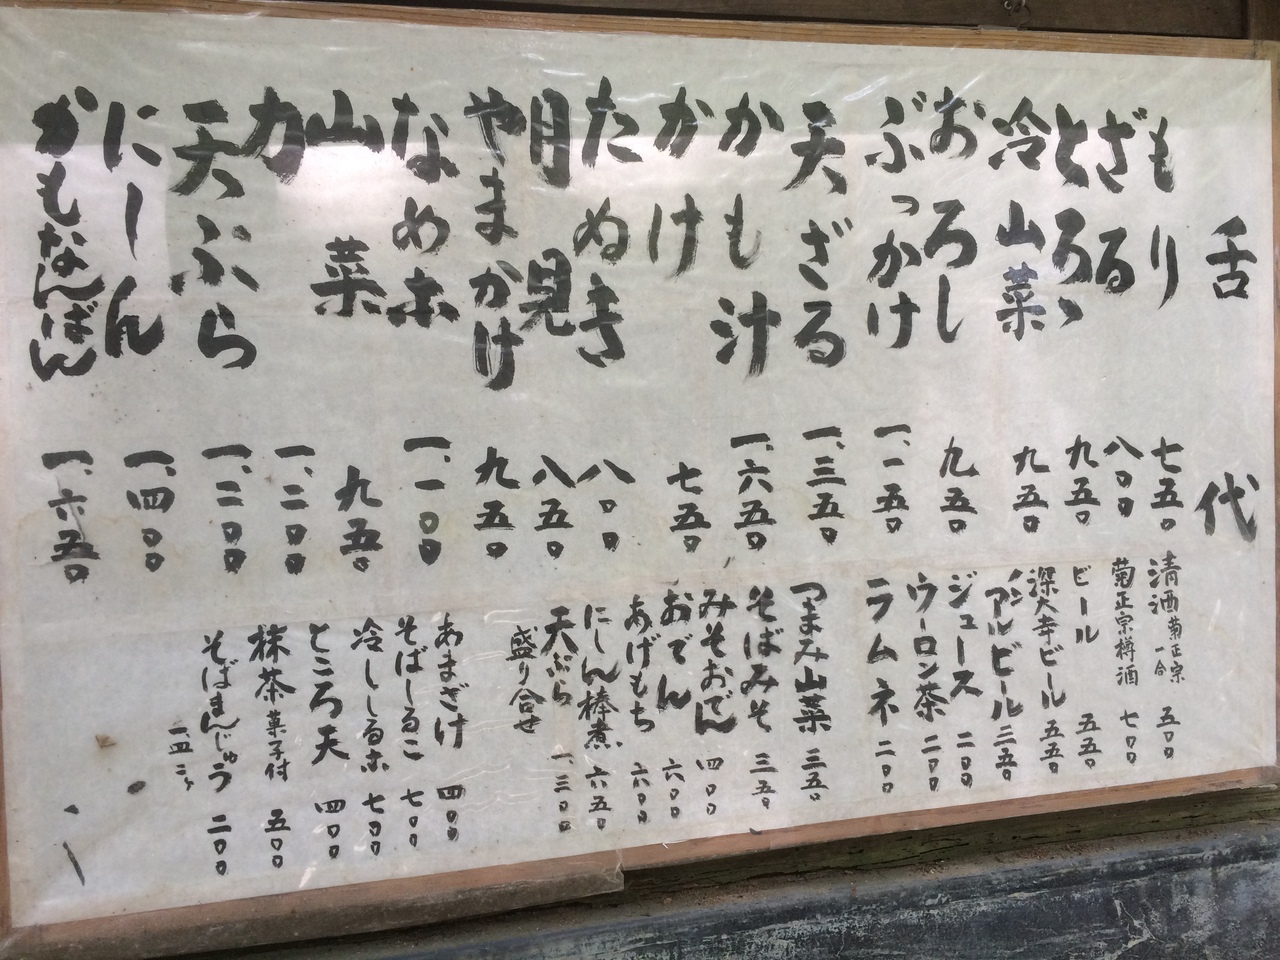 舌代
もり 七五〇
ざる 八〇〇
とろゝ 九五〇
冷山菜 九五〇
おろし 九五〇
ぶっかけ 一、一五〇
天ざる 一、三五〇
かも汁 一、六五〇
かけ 七五〇
たぬき 八〇〇
月見 八五〇
やまかけ 九五〇
なめこ 一、一〇〇
山菜 九五〇
力 一、二〇〇
天ぷら 一、二〇〇
にしん 一、四〇〇
かもなんばん 一、六五〇
清酒 菊正宗 一合 五〇〇
菊正宗樽酒 七〇〇
ビール 五五〇
深大寺ビール 五五〇
ノンアルビール 三五〇
ジュース 二〇〇
ウーロン茶 二〇〇
ラムネ 二〇〇
つまみ山菜 三五〇
そばみそ 三五〇
みそおでん 四〇〇
おでん 六〇〇
あげもち 六〇〇
にしん棒煮 六五〇
天ぷら盛り合せ 一、三〇〇
あまざけ 四〇〇
そばしるこ 七〇〇
冷ししるこ 七〇〇
ところ天 四〇〇
抹茶 菓子付 五〇〇
そばまんじゅう 二〇〇